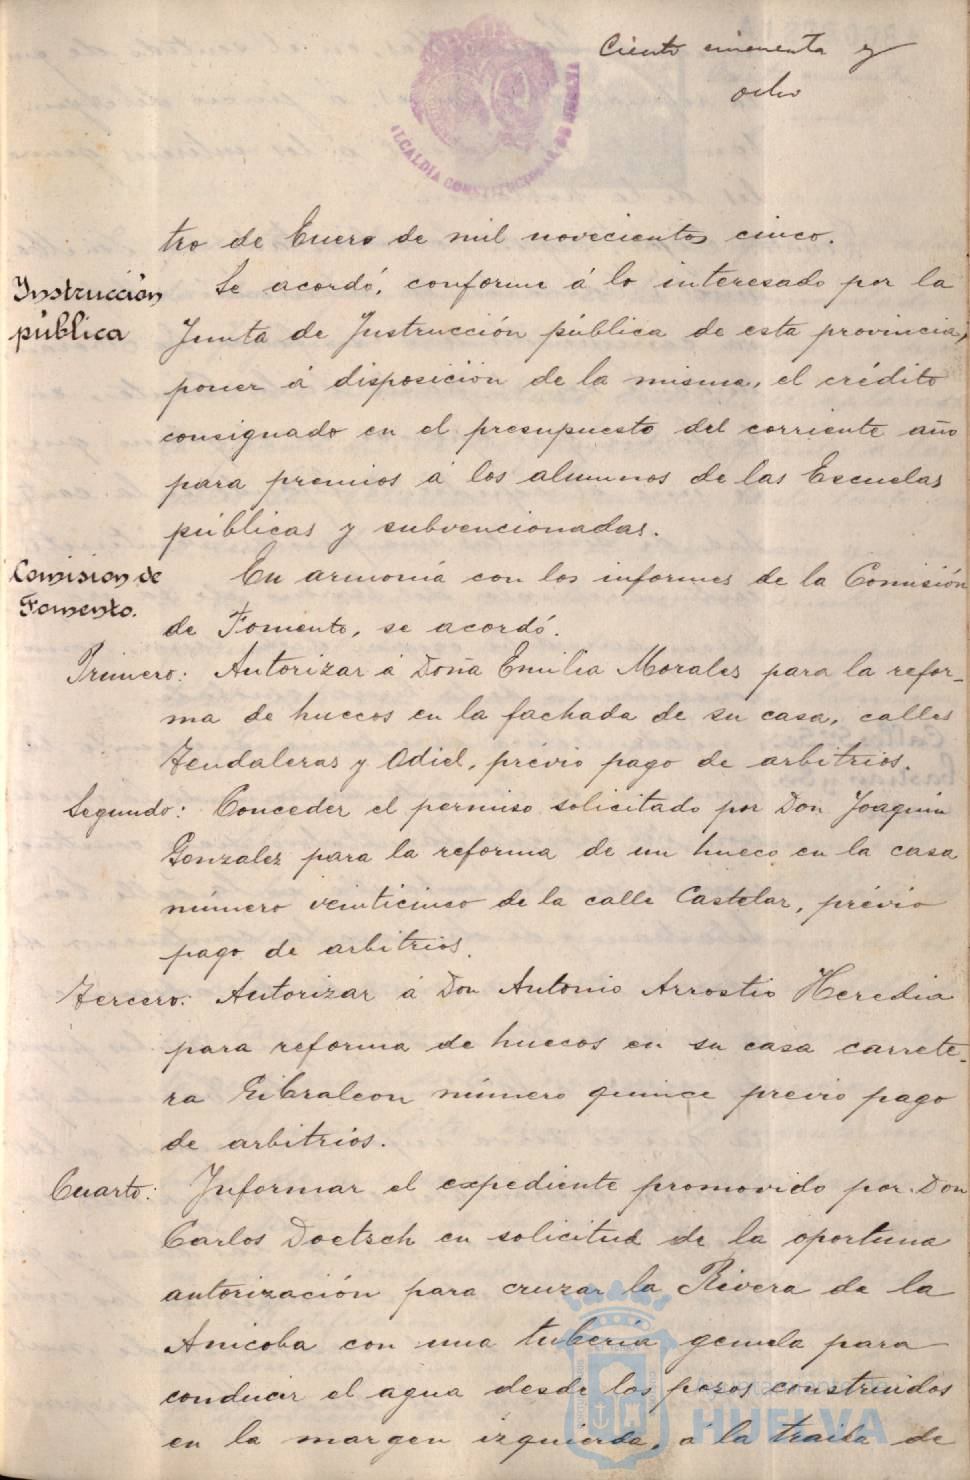 Ciento cincuenta y
ocho
ALCALDIA CONSTITUCIONAL DE HUELVA
tro de Enero de mil novecientos cinco.
Instrucción
pública
Se acordó, conforme á lo interesado por la
Junta de Instrucción pública de esta provincia,
poner á disposición de la misma, el crédito
consignado en el presupuesto del corriente año
para premios á los alumnos de las Escuelas
públicas y subvencionadas.
Comision de
Fomento.
En armonía con los informes de la Comisión
de Fomento, se acordó.
Primero: Autorizar á Doña Emilia Morales para la refor-
ma de huecos en la fachada de su casa, calles
Tendaleras y Odiel, prévio pago de arbitrios.
Segundo: Conceder el permiso solicitado por Don Joaquin
Gonzalez para la reforma de un hueco en la casa
número veinticinco de la calle Castelar, prévio
pago de arbitrios.
Tercero: Autorizar á Don Antonio Arrostio Heredia
para reforma de huecos en su casa carrete-
ra Gibraleon número quince previo pago
de arbitrios.
Cuarto: Informar el expediente promovido por Don
Carlos Doetsch en solicitud de la oportuna
autorización para cruzar la Rivera de la
Anicoba con una tubería gemela para
conducir el agua desde los pozos construidos
en la margen izquierda, á la traida de
Ayuntamiento de
HUELVA